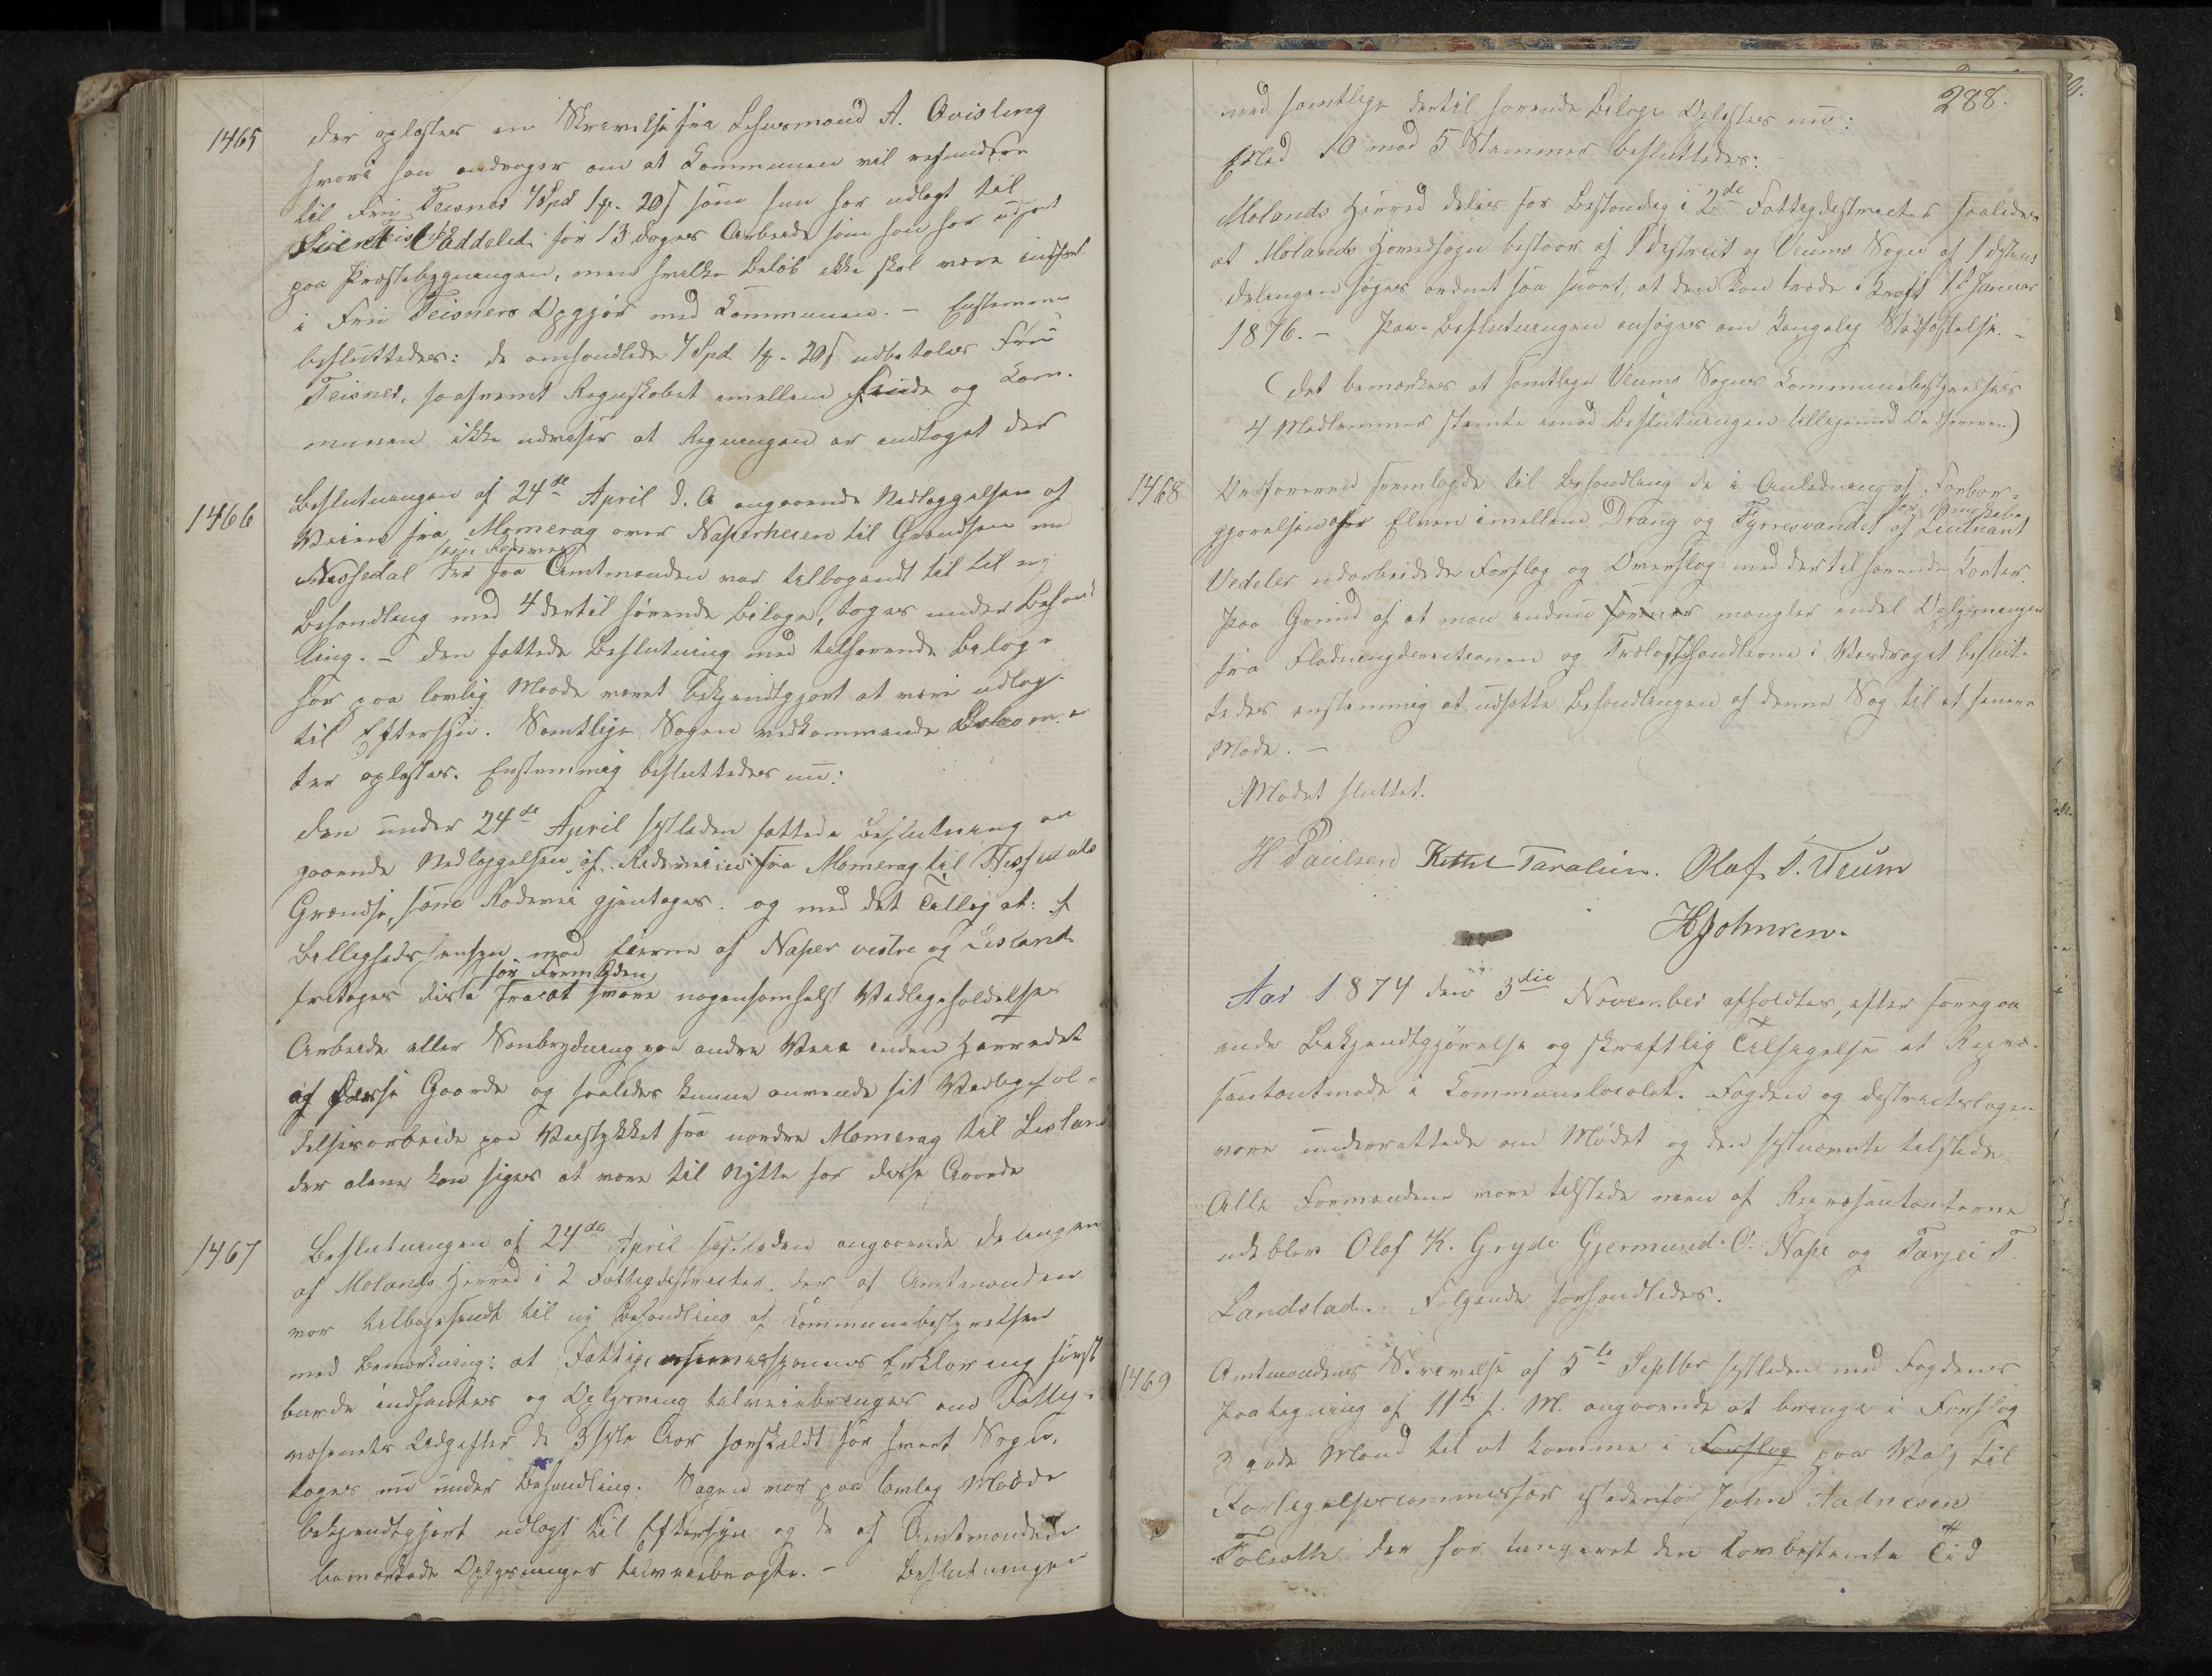 1465 Der oplæstes en Skrivelse fra Lehnsmand A. Qvisling
hvori han andrager om at Kommunen vil refundere
til Fru Teisner 4 Spd 1 # 20 s som hun har udlagt til
for 13 Dages Arbeide som han har udført
paa Præstebygningen, men hvilke Beløb ikke skal være indført
i Fru Teisners Opgjør med Kommunen. – Enstemmig
besluttedes: de omhandlede 4 Spd 1 # 20 s udbetales Fru
Teisner, saafremt Regnskabet imellem hende og Kom-
munen ikke udviser at Regningen er indtaget der
1466 Beslutningen af 24de April d. A angaaende Nedlæggelsen af
Veien fra Momrag over Naperheien til Grændsen mod
Nissedal som Rodevei der fra Amtmanden var tilbagesendt til ny
Behandling med 4 dertil hørende Bilage, toges under Behand
ling. – Den fattede Beslutning med tilhørende Bilage
har paa lovlig Maade været bekjendtgjort at være udlagt
til Eftersyn. Samtlige Sagen vedkommende Dokumen
ter oplæstes. Enstemmig besluttedes nu:
Den under 24de April sidstleden fattede Beslutning an
gaaende Nedlæggelsen af Rodeveien fra Momrag til Nissedals
Grændse, som Rodevei gjentages og med det Tillæg at: af
Billighedshensyn mod Eierne af Naper vestre og Lisland
fritages disse for Fremtiden fra at svare nogensomhelst Vedligeholdelses
Arbeide eller Snebrydning paa andre Veie inden Herredet
af disse Gaarde og saaledes kunne anvende sit Vedligehol-
delsesarbeide paa Veistykket fra nordre Momrag til Lisland
der alene kan siges at være til Nytte for disse Gaarde
1467 Beslutningen af 24de April sidstleden angaaende Delingen
af Molands Herred i 2 Fattigdistrikter, der af Amtmanden
var tilbagesendt til ny Behandling af Kommunebestyrelsen
med Bemærkning: at Fattigcommissionens Erklæring først
burde indhentes og Oplysning tilveiebringes om Fattig-
væsenets Udgifter de 3 sidste Aar særskildt for hvert Sogn,
toges nu under Behandling. Sagen var paa lovlig Maade
bekjendtgjort udlagt til Eftersyn og de af Amtmanden
bemærkede Oplysninger tilveiebragte. – Beslutningen
288.
med samtlige dertil hørende Bilage Oplæstes nu:
Med 10 mod 5 Stemmer besluttedes:
Molands Herred deles for Bestandig i 2de Fattigdistricter saaledes
at Molands Hovedsogn bestaar af 1 District og Veums Sogn af 1 District
Delingen søges ordnet saa snart, at den kan træde i Kraft 1te Januar
1876. – Paa Beslutningen ansøges om Kongelig Stadfæstelse. –
(Det bemærkes at samtlige Veums Sogns Kommunebestyrelses
4 Medlemmer stemte imod Beslutningen tilligemed Ordføreren)
1468 Ordføreren fremlagde til Behandling de i Anledning af Farbar-
gjørelsen af Elven imellem Drang og Fyrresvandet for Dampskibe af Lieutnant
Vedeler udarbeidede Forslag og Overslag med dertil hørende Karter.
Paa Grund af at man endnu mangler endel Oplysninger
fra Flødningsdirectionen og Trælasthandlerne i Vasdraget beslut-
tedes enstemmig at udsætte Behandlingen af denne Sag til et senere
Møde. –
Mødet sluttet.
H Paulsen Kittil Taraldlien. Olaf T. Veum
H Johnsen.
Aar 1874 den 3die November afholdtes, efter foregaa
ende Bekjendtgjørelse og skriftlig Tilsigelse et Repræ-
sentantmøde i Kommunelocalet. Fogden og Districtslægen
vare underrettede om Mødet og den sidstnævnte tilstede.
Alle Formændene vare tilstede men af Repræsentanterne
udeblev Olaf K. Gryde Gjermund O. Nape og Tarjei T.
Landslad. Følgende forhandledes.
1469 Amtmandens Skrivelse af 5te Septbr sidstleden med Fogdens
Paategning af 11te f. M. angaaende at bringe i Forslag
3 gode Mænd til at komme i Forslag paa Valg til
Forligelsescommissær istedenfor John Aadnesen
Folsæth der har fungeret den lovbestemte Tid